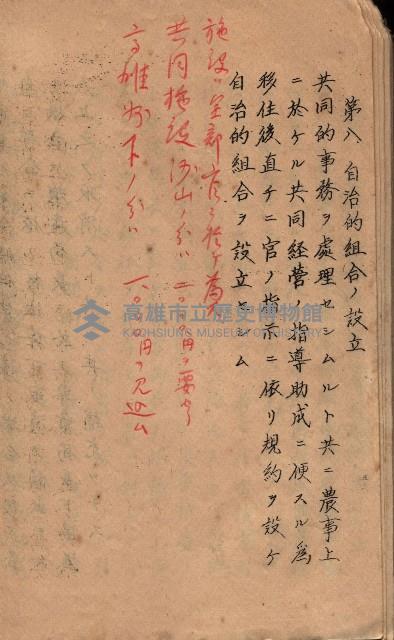 第八、自治的組合ノ設立
共同的事務ヲ處理セシムルト共ニ農事上
ニ於ケル共同經營ノ指導助成ニ便スル爲
移住後直チニ官ノ指示ニ依リ規約ヲ設ケ
自治的組合ヲ設立セシム
施設ハ全部官ニ於テ為
共同施設 山ノ分ハ 二 円ヲ要シ
高雄州下ノ分ハ 八 円ヲ見込ム
高雄市立歷史博物館
KAOHSIUNG MUSEUM OF HISTORY